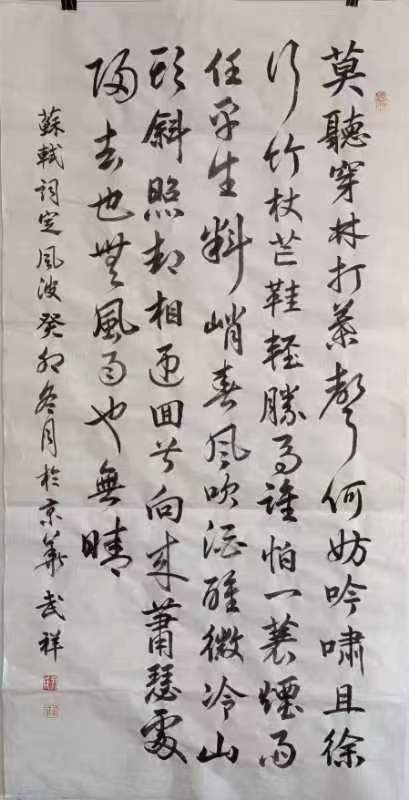 莫聽穿林打葉聲何妨吟嘯且徐
行竹杖芒鞋輕勝馬誰怕一蓑煙雨
任平生料峭春風吹酒醒微冷山
頭斜照却相迎回首向來蕭瑟處
歸去也無風雨也無晴
蘇軾詞定風波癸卯冬月於京華武祥